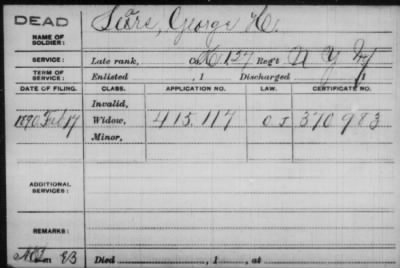 DEAD
NAME OF SOLDIER: George H.
SERVICE: Late rank, Co. 127 Reg't N Y
TERM OF SERVICE: Enlisted , 1 Discharged , 1
DATE OF FILING. CLASS. APPLICATION NO. LAW. CERTIFICATE NO.
Invalid,
1890 Feb 17 Widow, 415.117 370.983
Minor,
ADDITIONAL SERVICES:
REMARKS:
Died , 1 , at